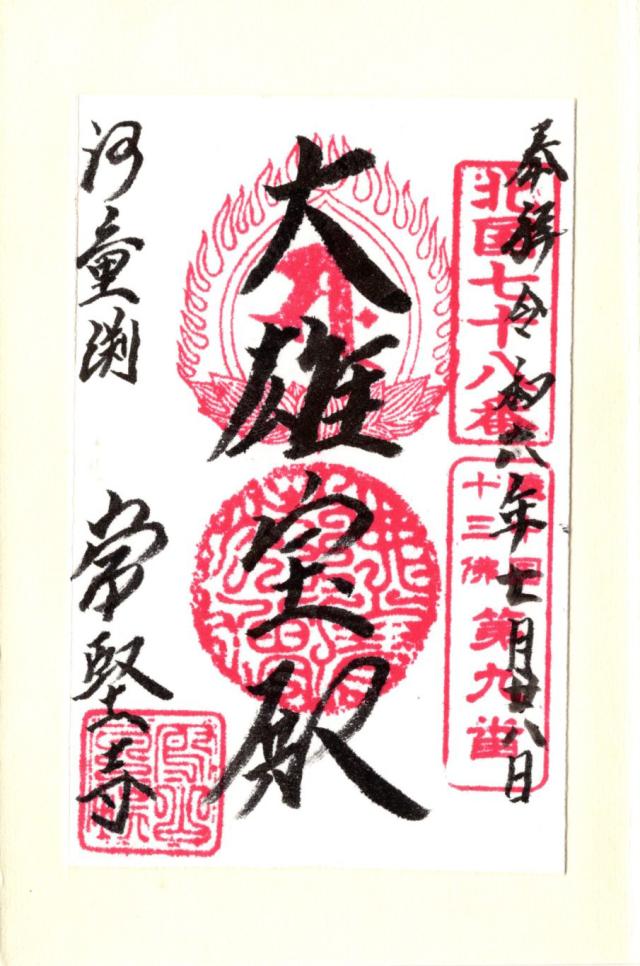 奉拝令和六年七月廿八日
北国七十八番
十三佛第九番
大雄宝殿
河童渕
常堅寺